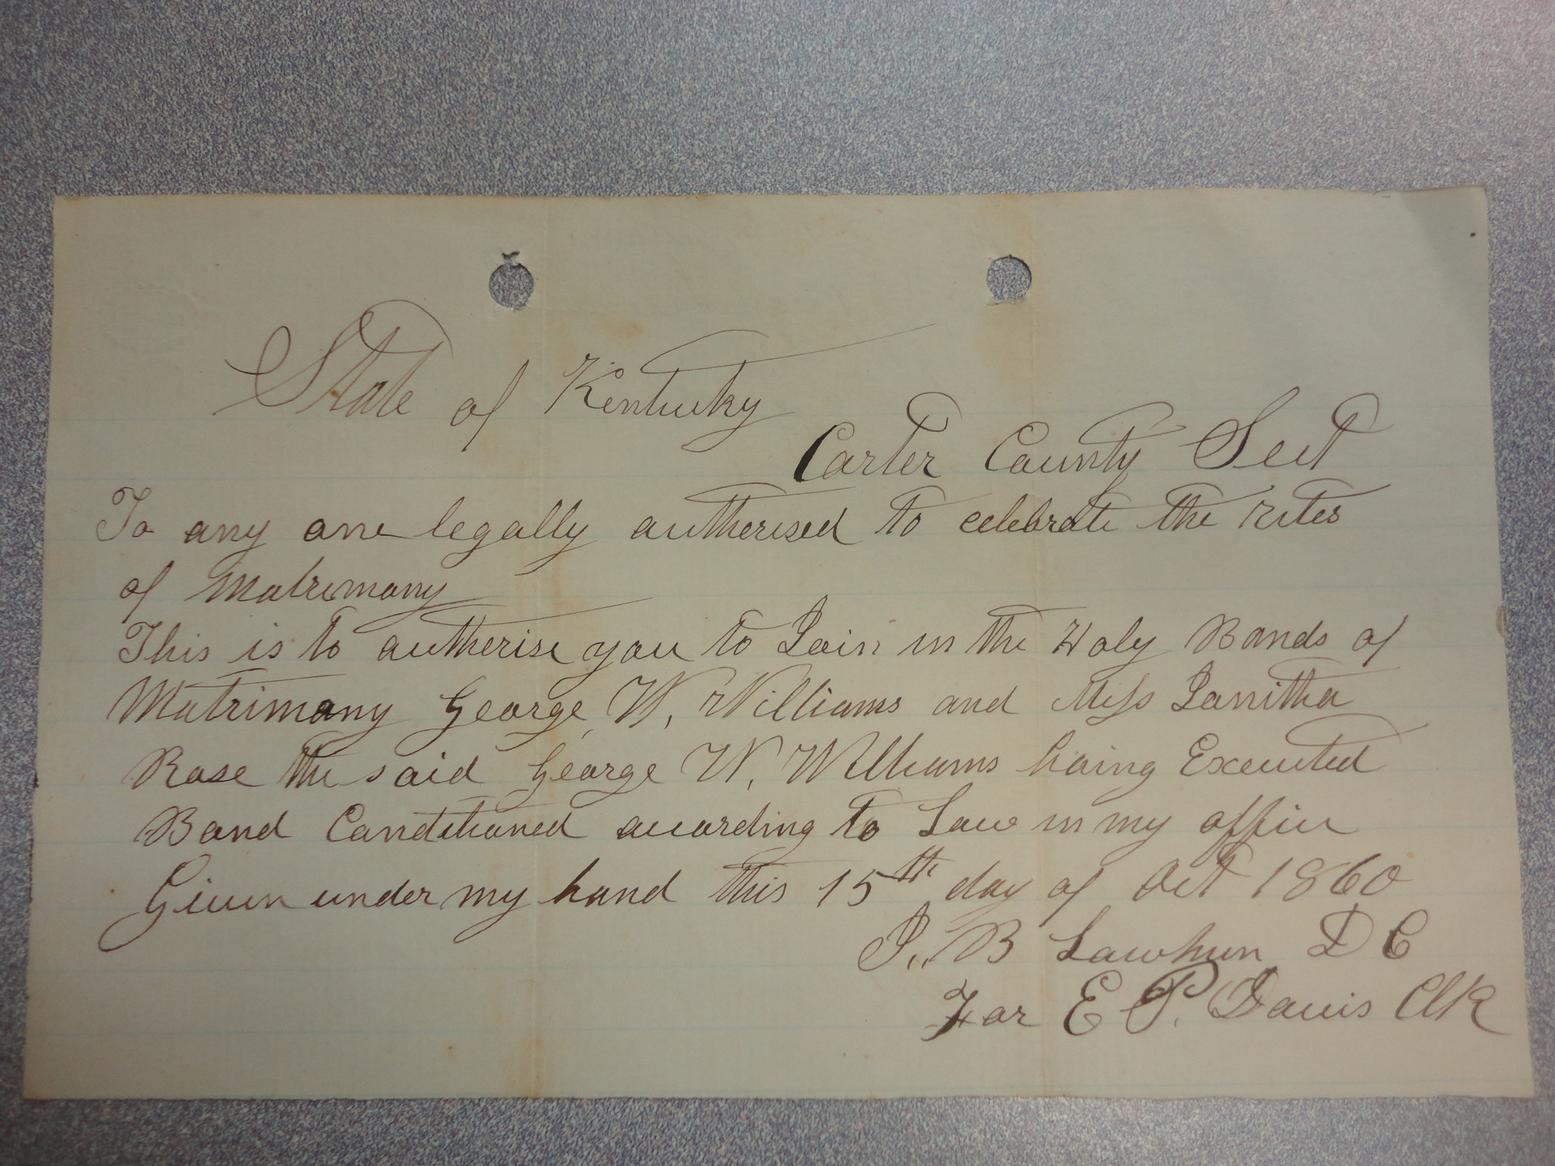 State of Kentucky
Carter County Sect
To any one legally autherised to celebrate the rites
of Matrimony
This is to autherise you to Join in the Holy Bonds of
Matrimony George W. Williams and Miss Janitha
Rose the said George W. Williams having Executed
Bond Conditioned according to Law in my office
Given under my hand this 15th day of Oct 1860
J. B Lawhun D C
For E P. Davis Clk